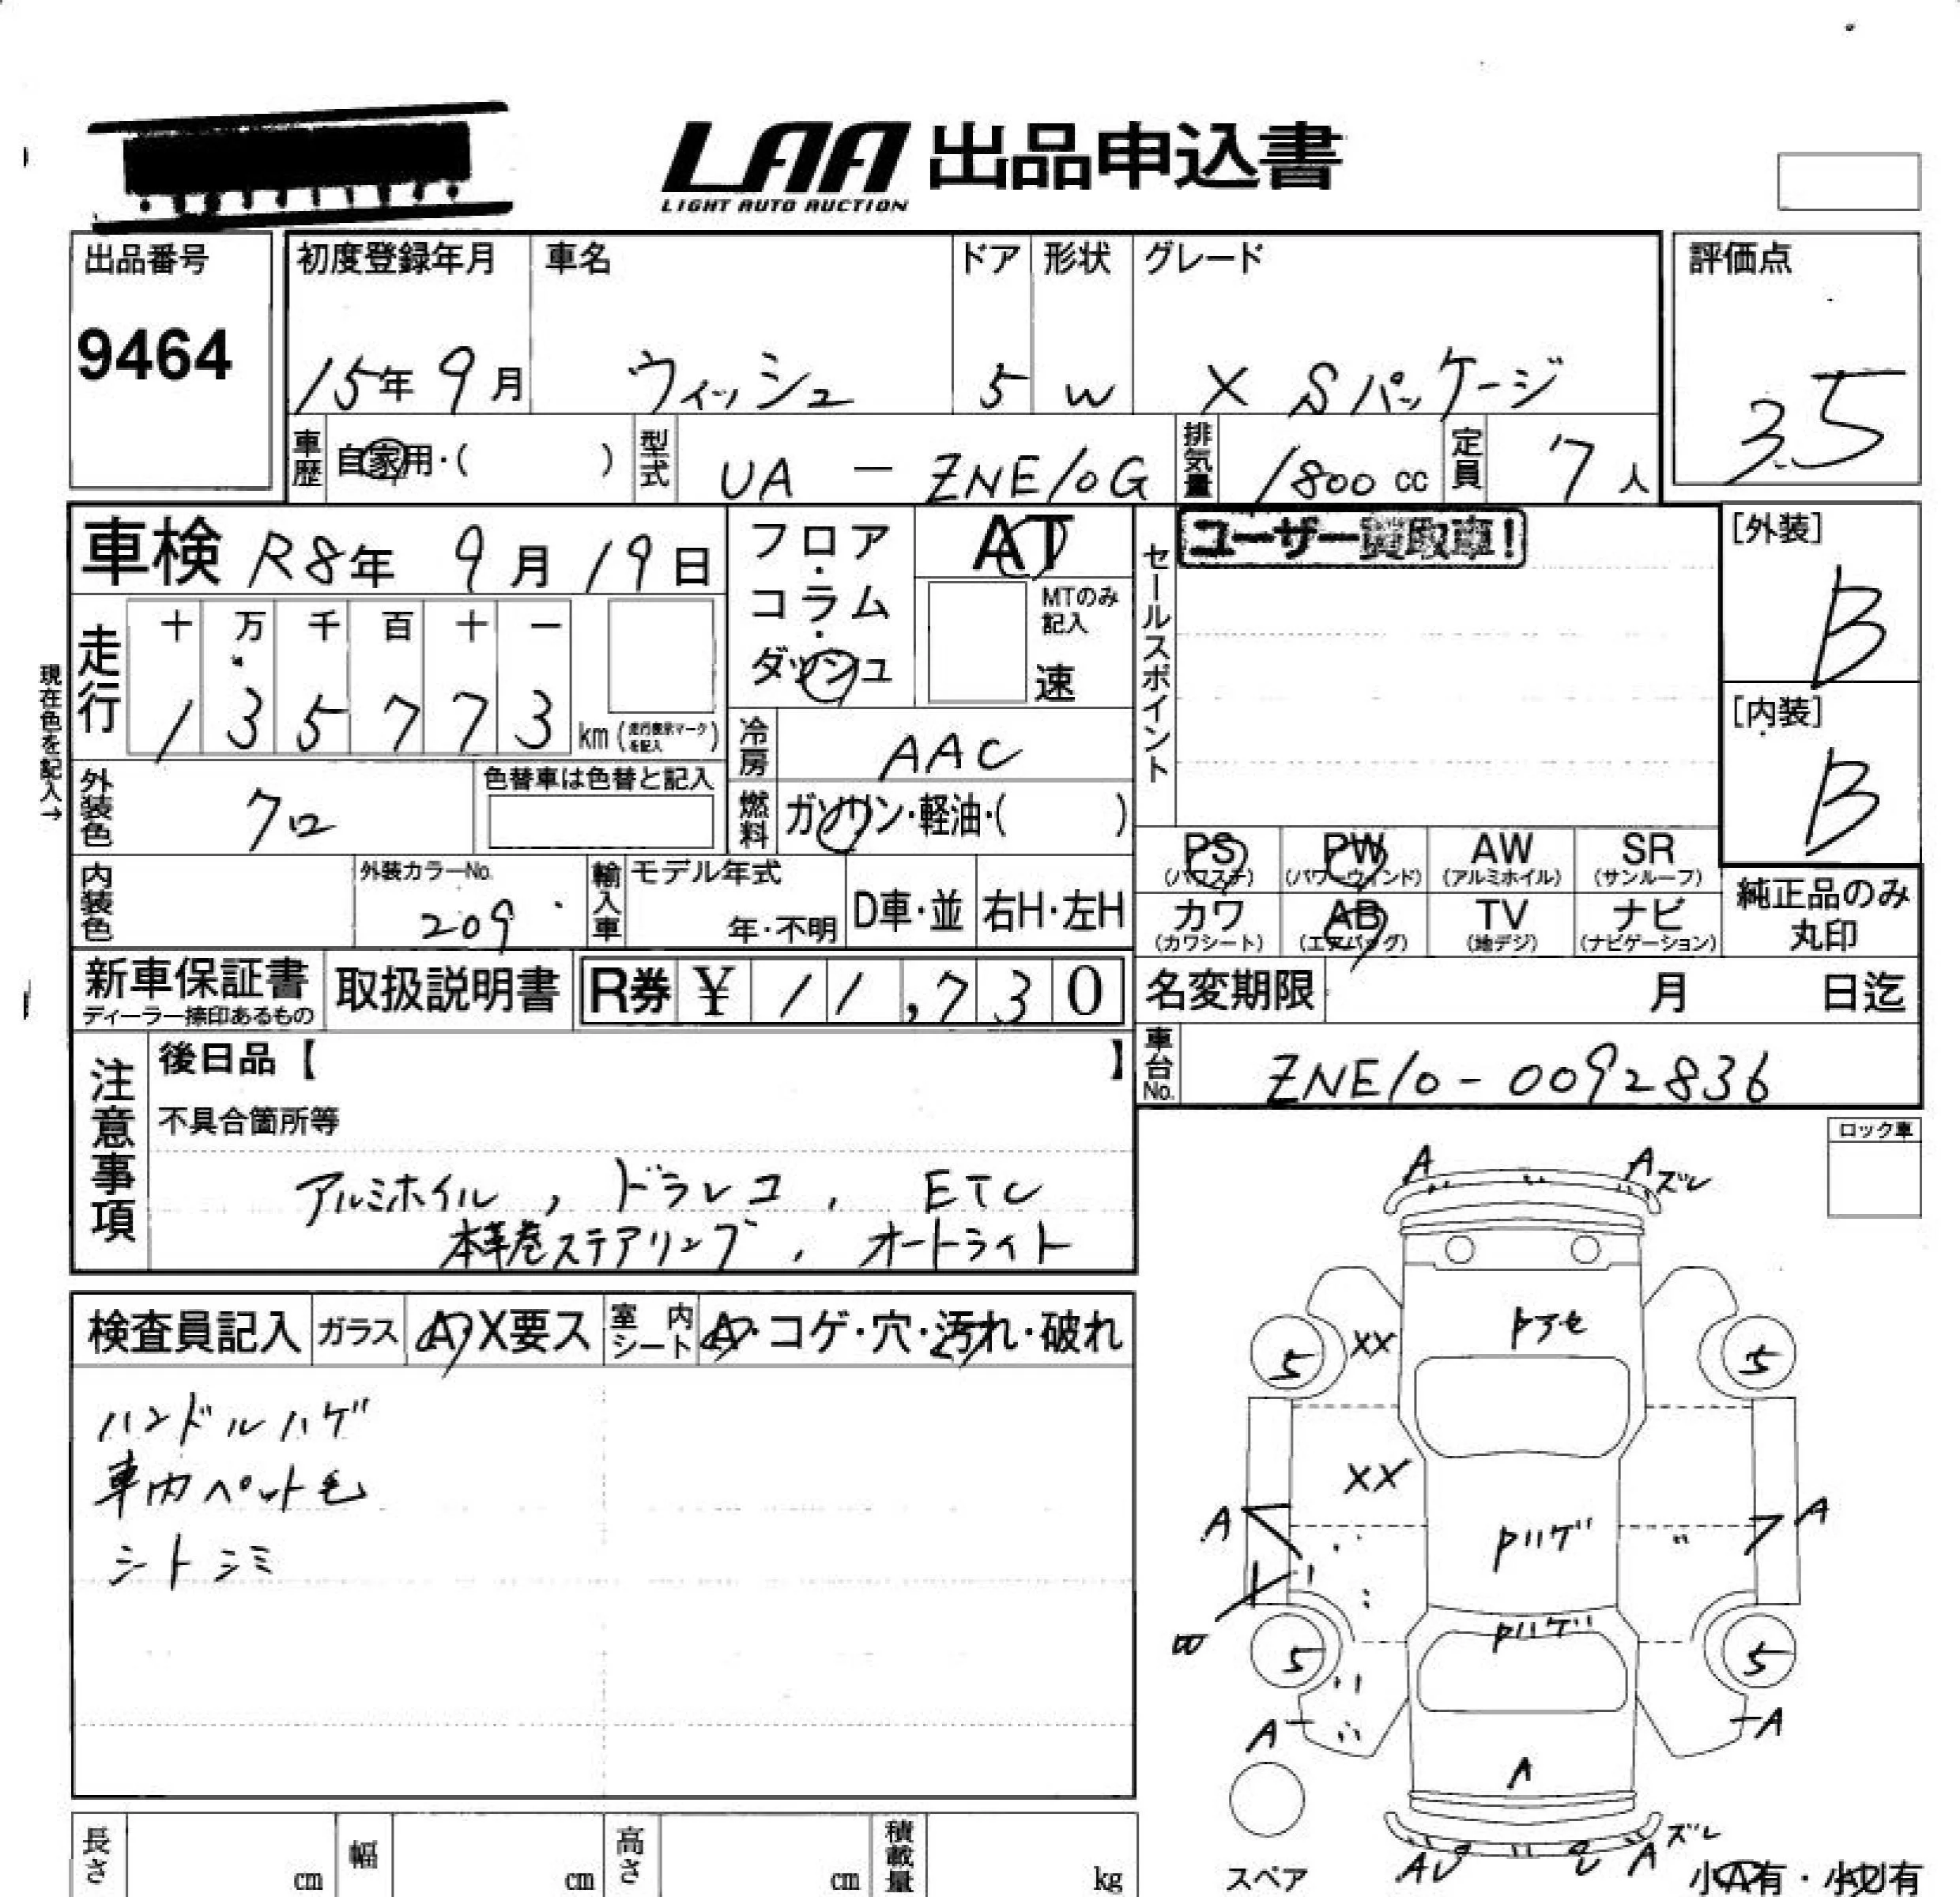 LAA 出品申込書
LIGHT AUTO AUCTION
出品番号 初度登録年月 車名 ドア 形状 グレード 評価点
9464 15年 9月 ウィッシュ 5 W X Sパッケージ 3.5
車歴 自家用・( ) 型式 UA - ZNE10G 排気量 1800 cc 定員 7人
車検 R8年 9月 19日 フロア・コラム・ダッシュ AT セールスポイント ユーザー買取車! [外装]
B
MTのみ記入
速
走行 十 万 千 百 十 一
1 3 5 7 7 3 km (走行表示マークを記入)
現在色を記入→
冷房 AAC
[内装]
B
外装色 クロ 色替車は色替と記入 燃料 ガソリン・軽油・( )
PS (パワステ) PW (パワーウィンド) AW (アルミホイル) SR (サンルーフ)
内装色 外装カラーNo. 209 輸入車 モデル年式 年・不明 D車・並 右H・左H
カワ (カワシート) AB (エアバッグ) TV (地デジ) ナビ (ナビゲーション) 純正品のみ丸印
新車保証書 ディーラー捺印あるもの 取扱説明書 R券 ¥ 11,730 名変期限 月 日迄
車台No. ZNE10-0092836
注意事項 後日品【 】
不具合箇所等
アルミホイル , ドラレコ , ETC
本革巻ステアリング , オートライト
ロック車
検査員記入 ガラス A・X要ス 室内シート A・コゲ・穴・汚れ・破れ
ハンドルハゲ
車内ペット毛
シトシミ
A A ズレ
Pアセ
5 XX 5
XX
A Pハゲ A
Pハゲ
W 5 5
A A
A
ズレ
A A
スペア
小A有・小U有
長さ cm 幅 cm 高さ cm 積載量 kg